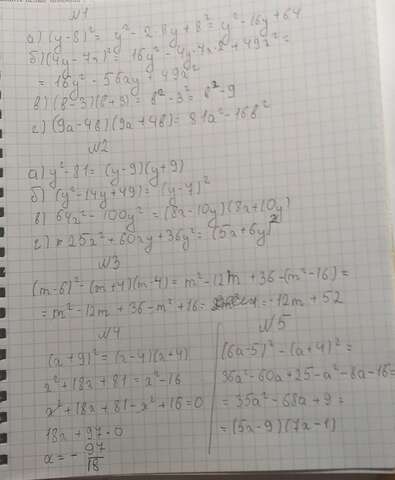 №1
а) (y-8)² = y² - 2·8y + 8² = y² - 16y + 64
б) (4y - 7x)² = 16y² - 4y·7x·2 + 49x² =
= 16y² - 56xy + 49x²
в) (в-3)(в+3) = в² - 3² = в² - 9
г) (9a - 4в)(9a + 4в) = 81a² - 16в²
№2
а) y² - 81 = (y-9)(y+9)
б) (y² - 14y + 49) = (y-7)²
в) 64x² - 100y² = (8x - 10y)(8x + 10y)
г) 25x² + 60xy + 36y² = (5x + 6y)²
№3
(m-6)² - (m+4)(m-4) = m² - 12m + 36 - (m² - 16) =
= m² - 12m + 36 - m² + 16 = -12m + 52
№4
(x + 9)² = (x-4)(x+4)
x² + 18x + 81 = x² - 16
x² + 18x + 81 - x² + 16 = 0
18x + 97 = 0
x = - 97/18
№5
(6a-5)² - (a+4)² =
36a² - 60a + 25 - a² - 8a - 16 =
= 35a² - 68a + 9 =
= (5a - 9)(7a - 1)